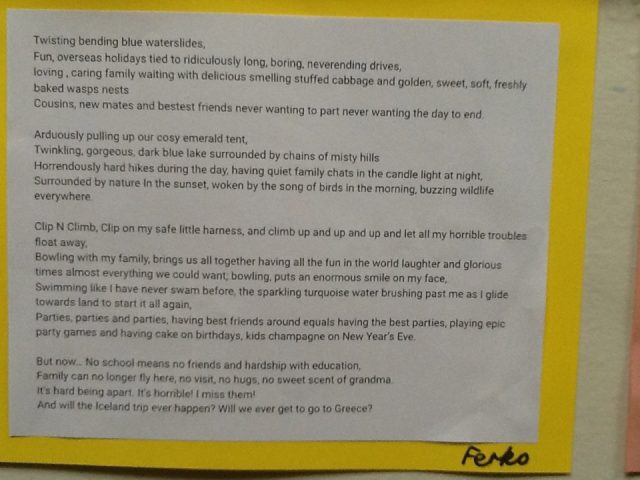 Twisting bending blue waterslides,
Fun, overseas holidays tied to ridiculously long, boring, neverending drives,
loving , caring family waiting with delicious smelling stuffed cabbage and golden, sweet, soft, freshly
baked wasps nests
Cousins, new mates and bestest friends never wanting to part never wanting the day to end.
Arduously pulling up our cosy emerald tent,
Twinkling, gorgeous, dark blue lake surrounded by chains of misty hills
Horrendously hard hikes during the day, having quiet family chats in the candle light at night,
Surrounded by nature In the sunset, woken by the song of birds in the morning, buzzing wildlife
everywhere.
Clip N Climb, Clip on my safe little harness, and climb up and up and up and let all my horrible troubles
float away,
Bowling with my family, brings us all together having all the fun in the world laughter and glorious
times almost everything we could want, bowling, puts an enormous smile on my face,
Swimming like I have never swam before, the sparkling turquoise water brushing past me as I glide
towards land to start it all again,
Parties, parties and parties, having best friends around equals having the best parties, playing epic
party games and having cake on birthdays, kids champagne on New Year's Eve.
But now... No school means no friends and hardship with education,
Family can no longer fly here, no visit, no hugs, no sweet scent of grandma.
It's hard being apart. It's horrible! I miss them!
And will the Iceland trip ever happen? Will we ever get to go to Greece?
Ferko